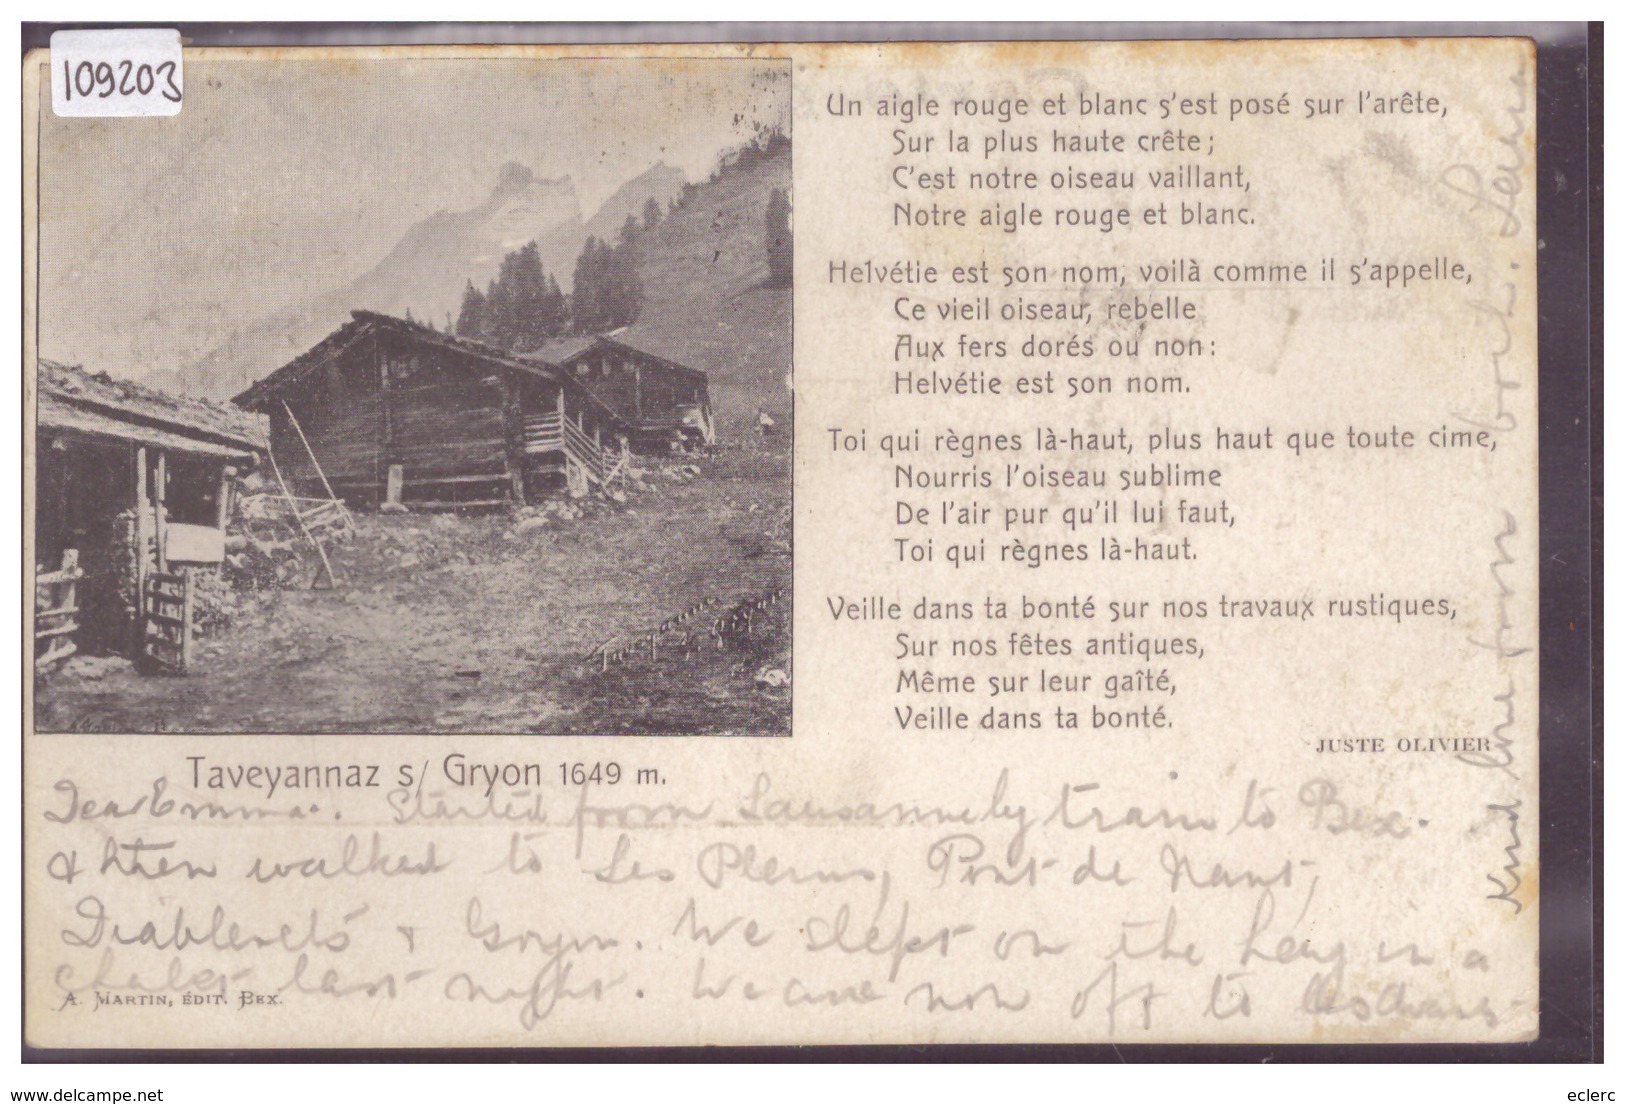 109203
Un aigle rouge et blanc s'est posé sur l'arête,
Sur la plus haute crête ;
C'est notre oiseau vaillant,
Notre aigle rouge et blanc.
Helvétie est son nom, voilà comme il s'appelle,
Ce vieil oiseau, rebelle
Aux fers dorés ou non :
Helvétie est son nom.
Toi qui règnes là-haut, plus haut que toute cime,
Nourris l'oiseau sublime
De l'air pur qu'il lui faut,
Toi qui règnes là-haut.
Veille dans ta bonté sur nos travaux rustiques,
Sur nos fêtes antiques,
Même sur leur gaîté,
Veille dans ta bonté.
JUSTE OLIVIER
Taveyannaz s/ Gryon 1649 m.
Dear Emma. Started from Lausanne by train to Bex.
& then walked to Les Plans, Pont de Nant,
Diablerets & Gryon. We slept on the hay in a
chalet last night. We are now off to
A. MARTIN, ÉDIT. BEX.
Kind love from both. Laura
delcampe.net
eclerc